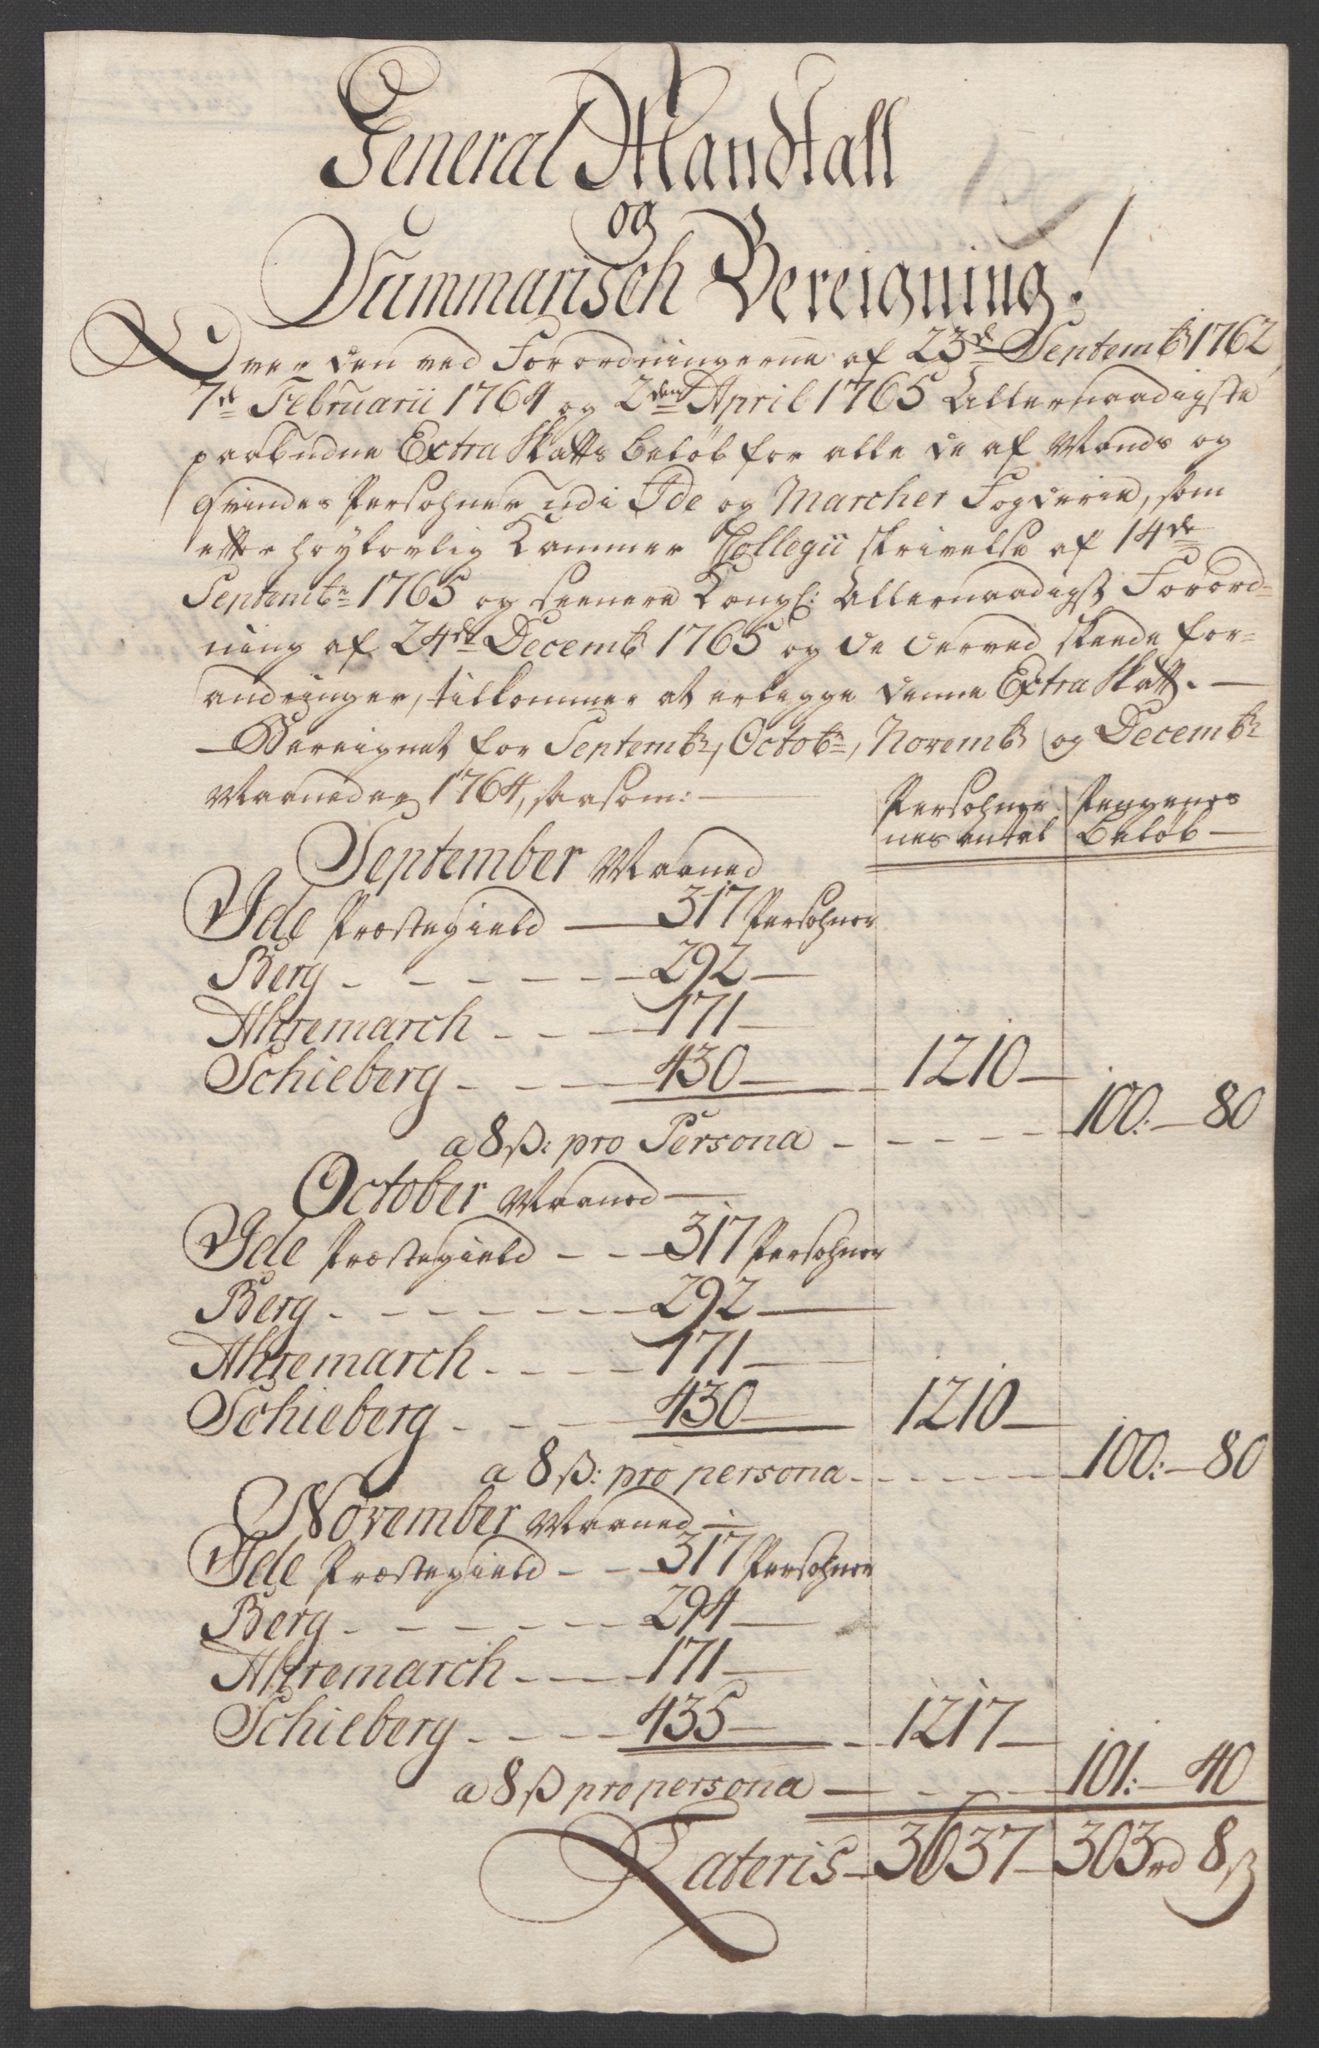 General Mandtall
og
Summarisch Bereigning!
Over den ved Forordningerne af 23de Septembr 1762
7de Februarii 1764 og 2den April 1765 Allernaadigste
paabudne Extra Skatts beløb for alle de af Mands og
Qvindes Persohner udi Ide og Marcher Fogderie, som
efter høylovlig Cammer Collegii skrivelse af 14de
Septembr 1765 og seenere Kongl: Allernaadigst Forord-
ning af 24de Decembr 1765 og de derved skeede for-
andringer, tilkommer at erlegge denne Extra Skatt. —
— Bereignet for Septembr, Octobr, Novembr og Decembr
Maaneder 1764, saasom: —
Persohner- Pengenes
nes antal beløb —
September Maaned
Ide Præstegield — 317 Persohner
Berg - - - - 292 —
Ahremarch - - - 171 —
Schieberg - - - 430 — 1210 —
a 8 ß: pro Persona - - - - 100: — 80
October Maaned —
Ide Præstegield - - 317 Persohner
Berg - - - - - 292 —
Ahremarch - - - 171 —
Schieberg - - - 430 — 1210 —
a 8 ß: pro persona - - - - 100: — 80
November Maaned —
Ide Præstegield - - 317 Persohner
Berg - - - - - 294 —
Ahremarch - - - 171 —
Schieberg - - - 435 — 1217 —
a 8 ß pro persona — - - - 101: — 40
Lateris — 3637 — 303 rd 8 ß